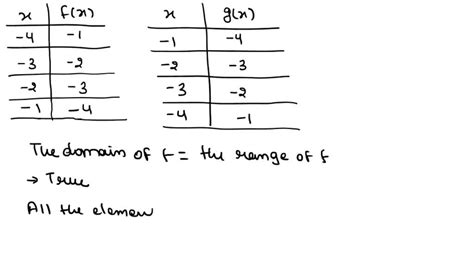 x f(x) x g(x)
-4 -1 -1 -4
-3 -2 -2 -3
-2 -3 -3 -2
-1 -4 -4 -1
The domain of f = the range of f
→ True
All the elemen